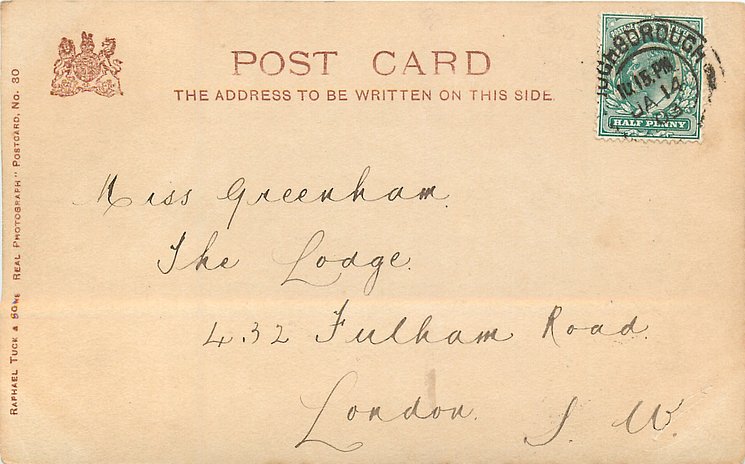 POST CARD
THE ADDRESS TO BE WRITTEN ON THIS SIDE.
RAPHAEL TUCK & SONS REAL PHOTOGRAPH" POSTCARD, No. 30
HALF PENNY
10.15 PM
JA 14
03
Miss Greenham.
The Lodge.
432 Fulham Road.
London. S. W.